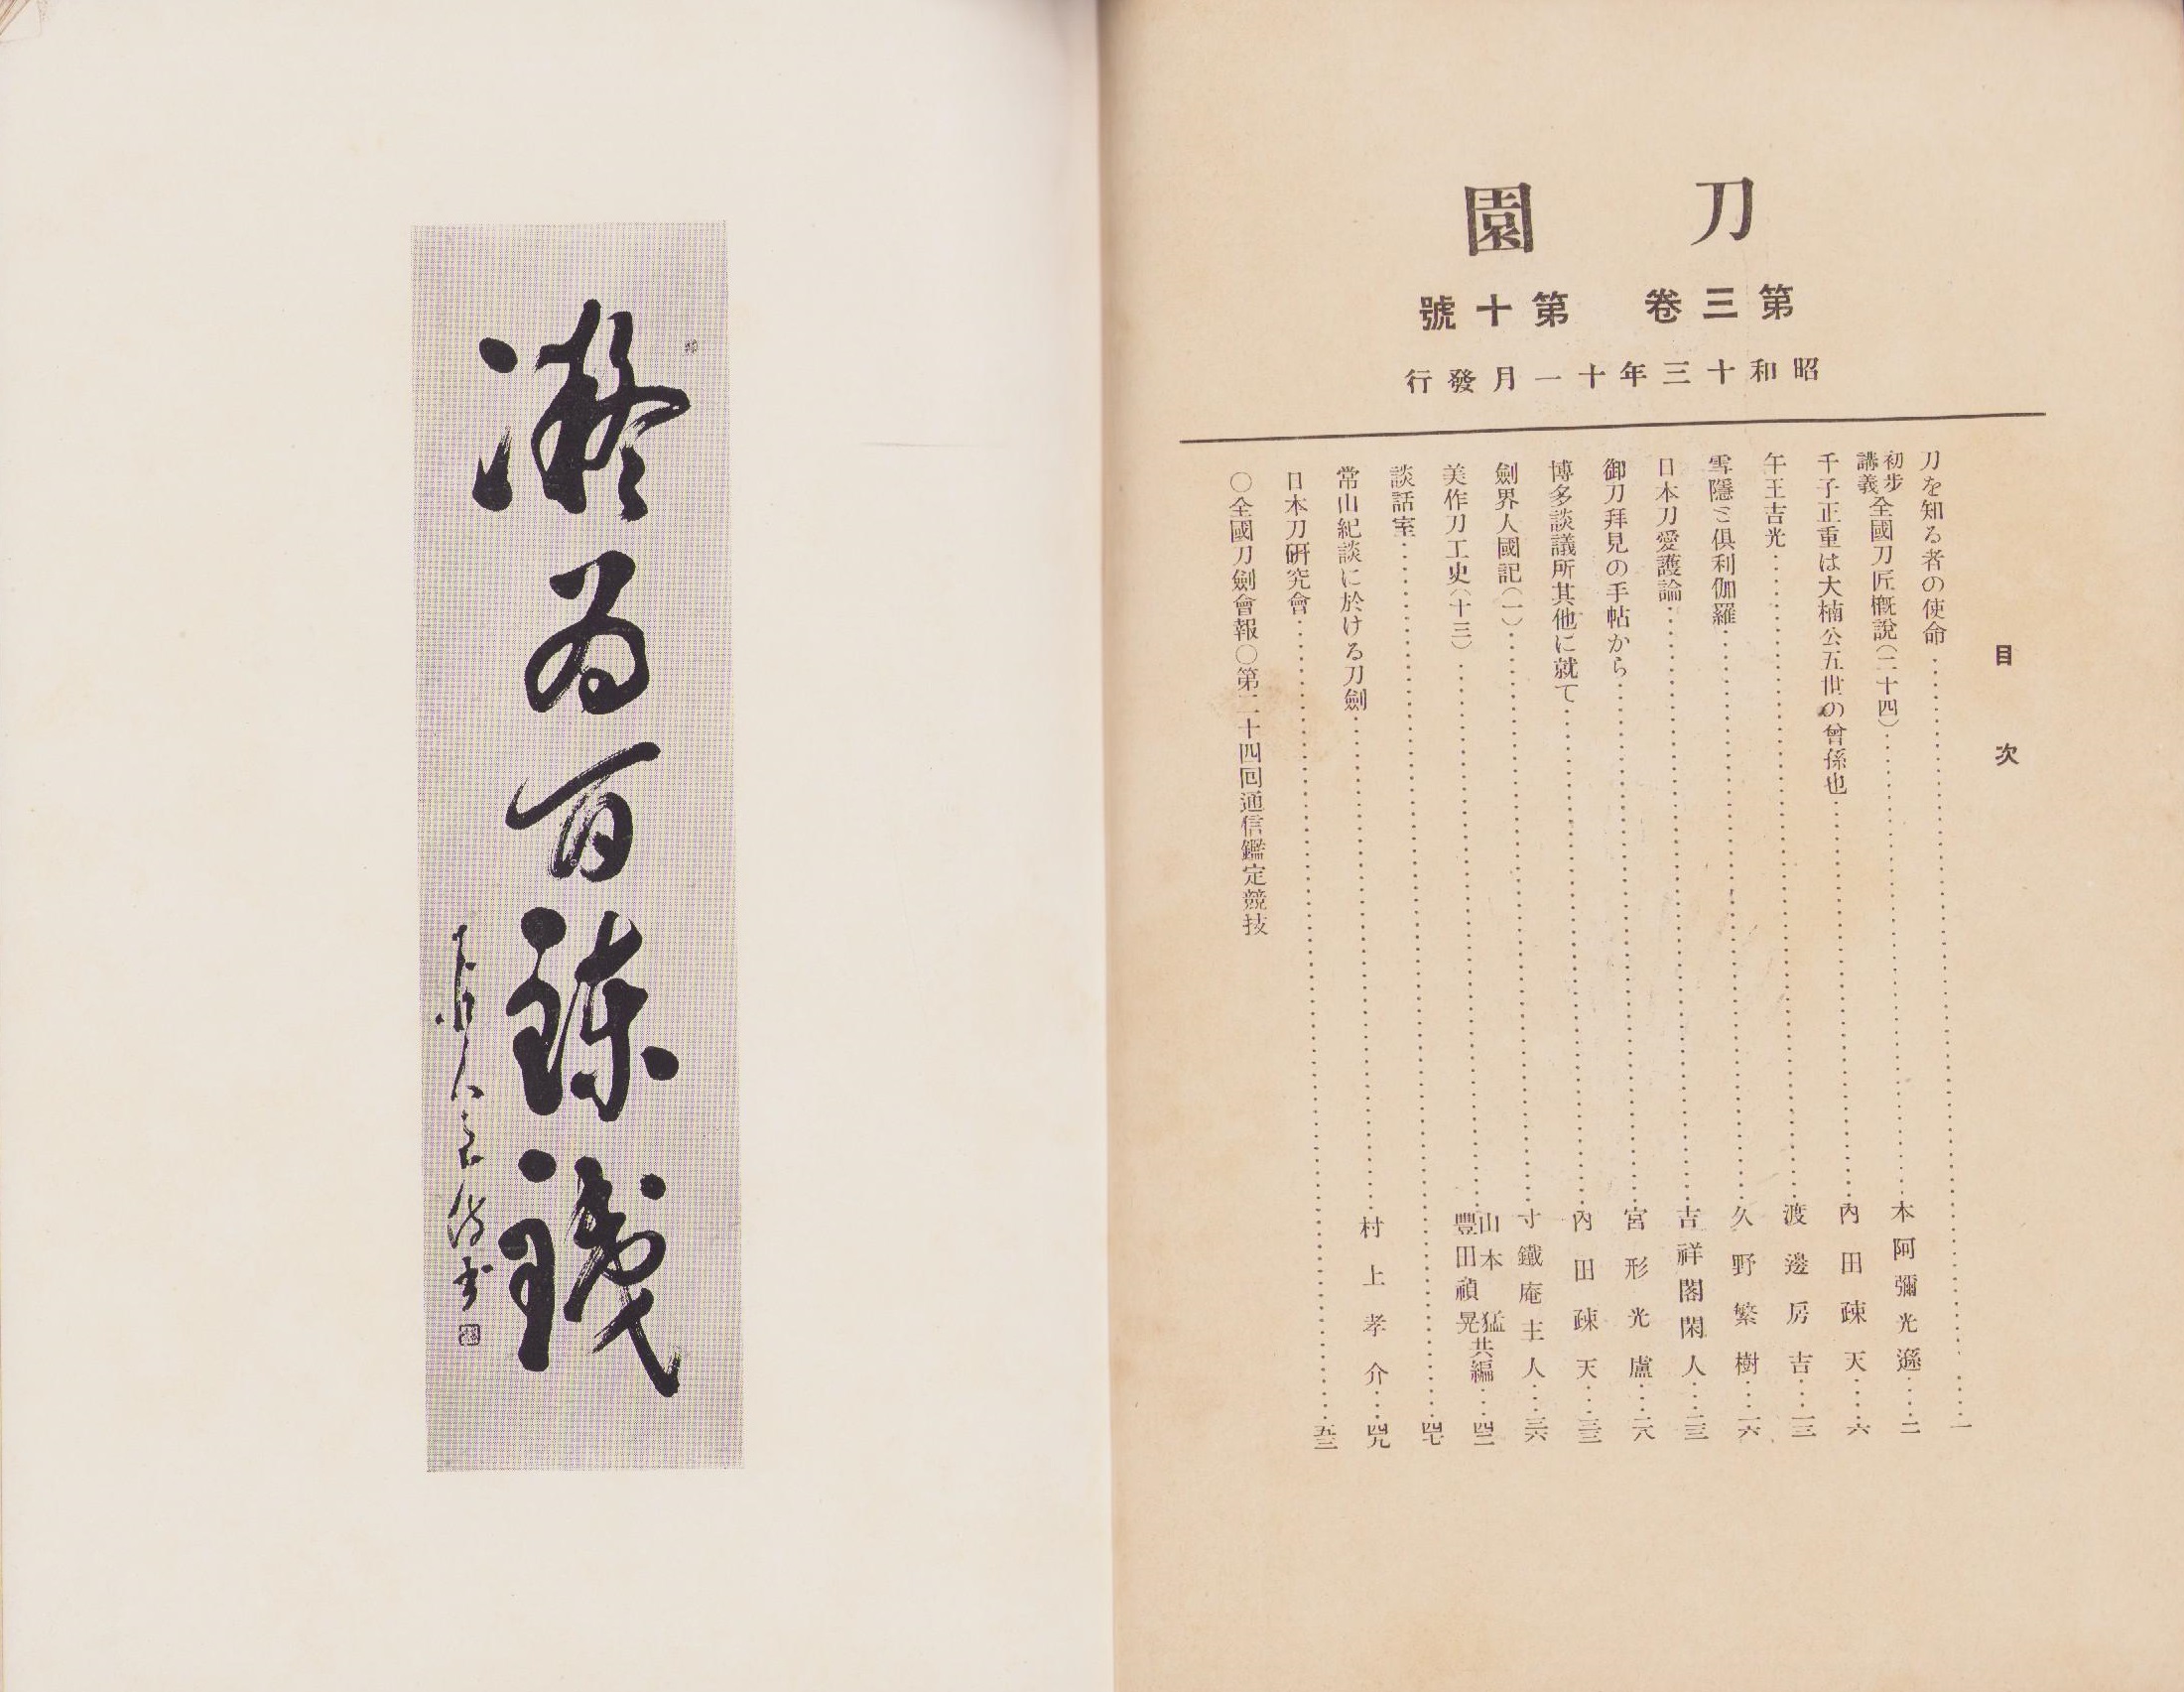 刀園
第三卷 第十號
昭和十三年十一月發行
目次
刀を知る者の使命……一
初步講義全國刀匠概說(二十四)……本阿彌光遜……二
千子正重は大楠公五世の曾孫也……內田疎天……六
午王吉光……渡邊房吉……一三
雪隱と俱利伽羅……久野繁樹……一六
日本刀愛護論……吉祥閣閑人……二三
御刀拜見の手帖から……宮形光盧……二八
博多談議所其他に就て……內田疎天……三三
劍界人國記(一)……寸鐵庵主人……三六
美作刀工史(十三)……山本猛 豐田禎晃共編……四二
談話室……四七
常山紀談に於ける刀劍……村上孝介……四九
日本刀研究會……五三
○全國刀劍會報○第二十四回通信鑑定競技
凝為百鍊鐵